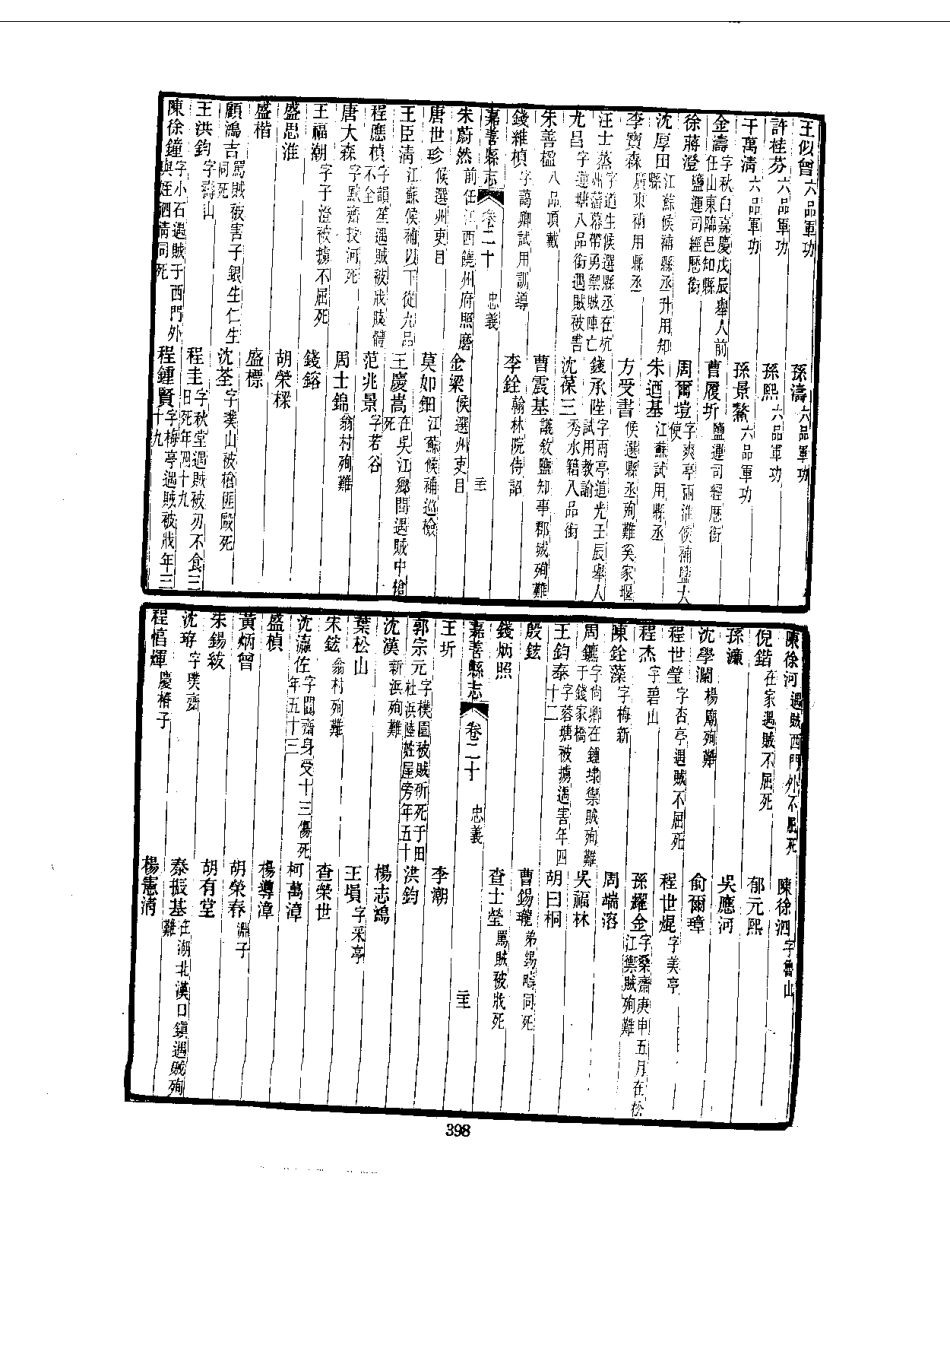 王似曾六品軍功 孫濤六品軍功
許桂芬六品軍功 孫熙六品軍功
干萬清六品軍功 孫景鰲六品軍功
金濤字秋白嘉慶戊辰舉人前任山東臨邑知縣 曹履圻鹽運司經歷銜
徐蔣澄鹽運司經歷銜 周爾塏字爽亭兩淮候補鹽大使
沈厚田江蘇候補縣丞升用知縣 朱迺基江蘇試用縣丞
李寶森廣東補用縣丞 方受書候選縣丞殉難奚家堰
汪士蓀字道生候選縣丞在杭州辦幕帶勇禦賊陣亡 錢承陛字雨亭道光壬辰舉人試用教諭
尤昌字蓮塘八品銜遇賊被害 沈葆三秀水籍八品銜
朱善榲八品頂戴 曹震基議敘鹽知事郡城殉難
錢維楨字藹卿試用訓導 李銓翰林院待詔
嘉善縣志 卷二十 忠義
朱蔚然前任江西饒州府照磨 金梁候選州吏目
唐世珍候選州吏目 莫如鈿江蘇候補巡檢
王臣清江蘇候補以下從九品 王慶嵩在吳江鄉間遇賊中槍死
程應楨字韻笙遇賊被戕肢體不全 范兆景字若谷
唐大森字默齋投河死 周士錦翁村殉難
王福朝字子澄被擄不屈死 錢鎔
盛思淮 胡榮樑
盛楷 盛標
顧鴻吉罵賊被害子銀生仁生同死 沈荃字璞山被槍匪毆死
王洪鈞字壽山 程圭字秋堂遇賊被刃不食三日死年四十九
陳徐鐘字小石遇賊于西門外與姪駟清同死 程鍾賢字梅亭遇賊被戕年三十九
陳徐河遇賊西門外不屈死 陳徐泗字魯山
倪鍇在家遇賊不屈死 郁元熙
孫濂 吳應河
沈學瀾楊廟殉難 俞爾璋
程世瑩字杏亭遇賊不屈死 程世焜字美亭
程杰字碧山 孫躍金字桑齋庚申五月在松江禦賊殉難
陳銓藻字梅新 周端溶
周鑣字尚卿在鍾埭禦賊殉難于錢家橋 吳福林
王鈞泰字蓉塘被擄遇害年四十二 胡日桐
殷鉉 曹錫瓏弟錫疇同死
錢炳照 查士瑩罵賊被戕死
嘉善縣志 卷二十 忠義
王圻 李潮
郭宗元字樸園被賊斫死于田杜浜陸姓屋旁年五十 洪鈞
沈漢新浜殉難 楊志鴻
葉松山 王塤字采亭
朱鉉翁村殉難 查榮世
沈瀛佐字閬齋身受十三傷死年五十三 柯萬漳
盛楨 楊導漳
黃炳曾 胡榮春淵子
朱錫紱 胡有堂
沈琗字璞齋 秦振基在湖北漢口鎮遇賊殉難
程悟煇慶椿子 楊憲濤
398